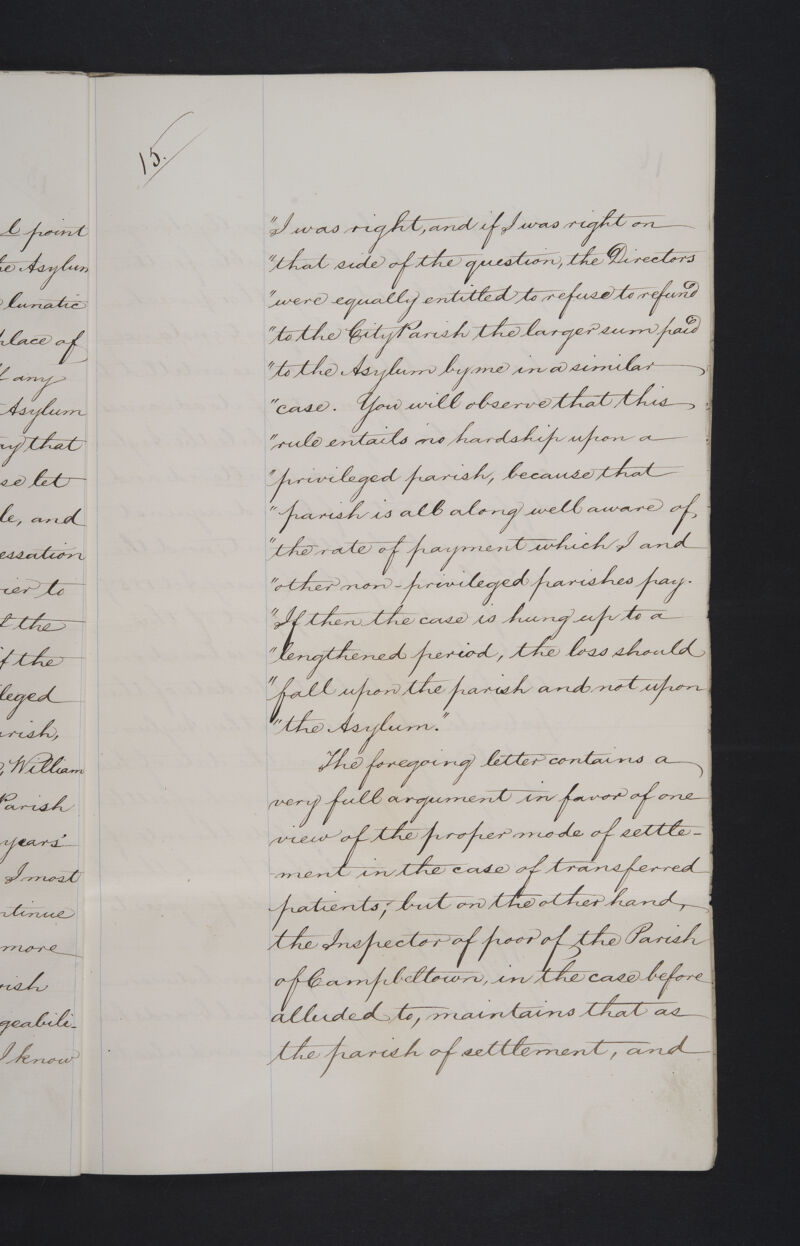 l point
he Asylum
lunatic
place of
any
Asylum
ay that
se let
le, and
essation
rier to
the
f the
leged
arish,
William
Parish
years'
I most
ntinue
more
rish
geabili-
I know
15.
"I was right, and if I was right on
"that side of the question, the Directors
"were equally entitled to refuse to refund
"to the City Parish the larger sum paid
"to the Asylum by me in a similar
"case. You will observe that this
"rule entails no hardship upon a
"privileged parish, because that
"parish is all along well aware of,
"the rate of payment which I and
"other non-privileged parishes pay.
"If then the case is hung up to a
"lengthened period, the loss should
"fall upon the parish and not upon
"the Asylum."
The foregoing letter contains a
very full argument in favor of one
view of the proper mode of settle-
ment in the case of transferred
patients; but on the other hand,
the Inspector of poor of the Parish
of Campbeltown, in the case before
alluded to, maintains that as
the parish of settlement, and